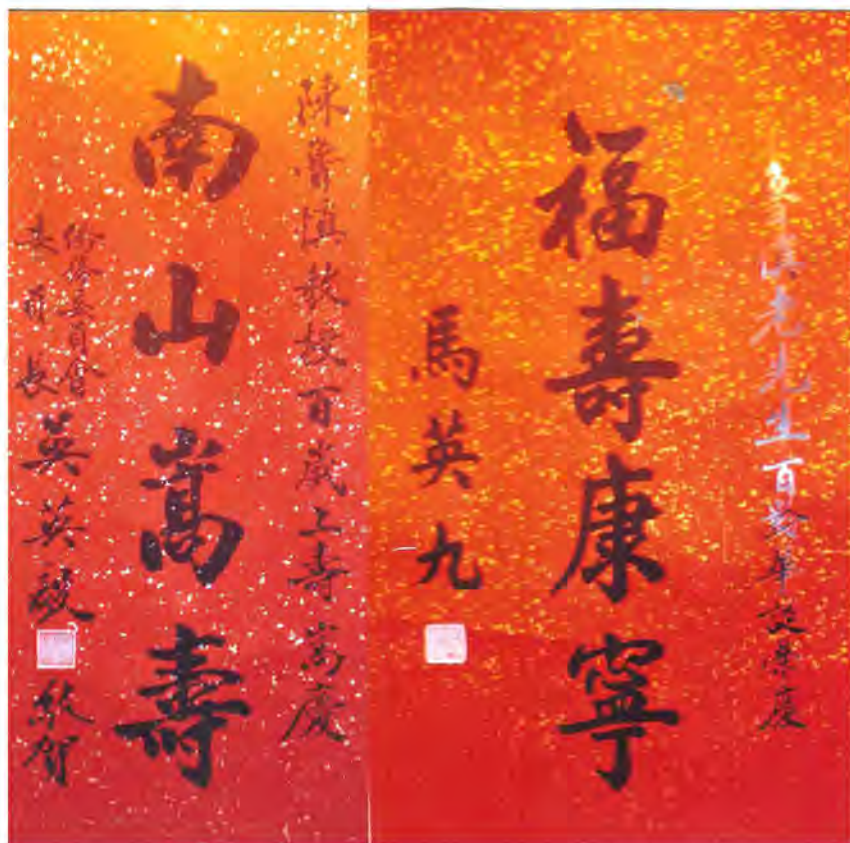 老先生百齡華誕慶
福壽康寧
馬英九
陳滇教授百歲上壽嵩慶
南山嵩壽
僑務委員會
委員長
吳英毅 敬賀